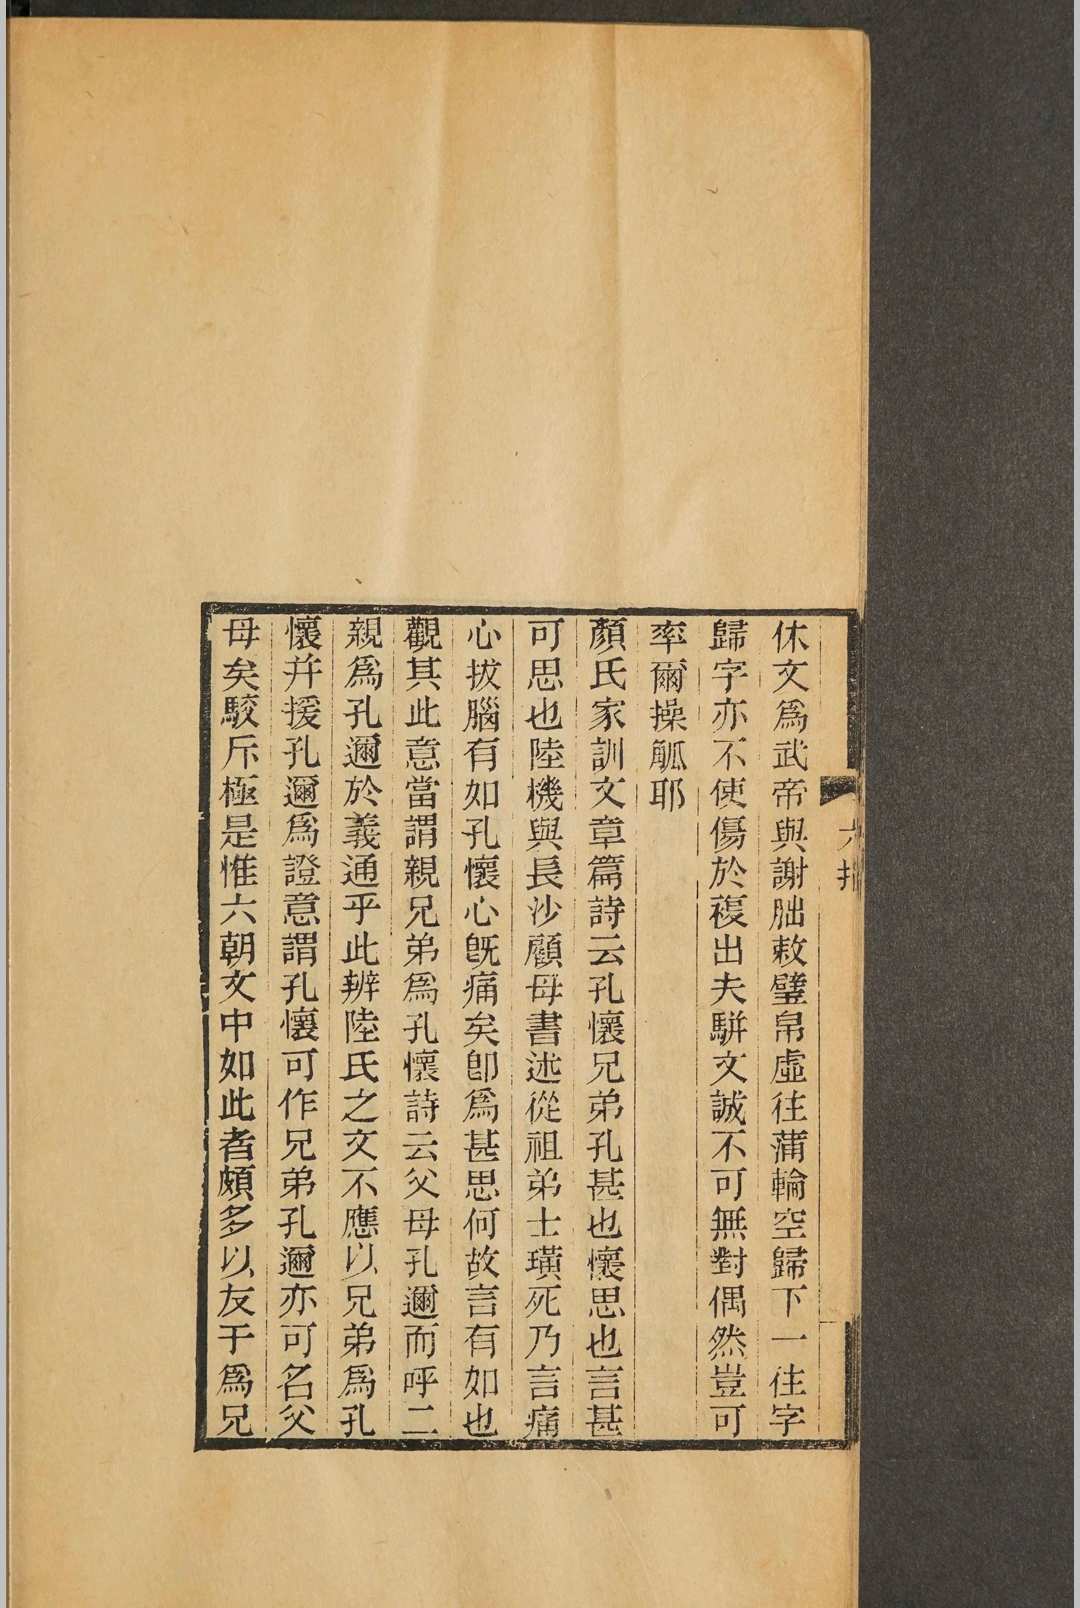 休文爲武帝與謝朏敕璧帛虛往蒲輪空歸下一往字
歸字亦不使傷於複出夫駢文誠不可無對偶然豈可
率爾操觚耶
顏氏家訓文章篇詩云孔懷兄弟孔甚也懷思也言甚
可思也陸機與長沙顧母書述從祖弟士璜死乃言痛
心拔腦有如孔懷心旣痛矣卽爲甚思何故言有如也
觀其此意當謂親兄弟爲孔懷詩云父母孔邇而呼二
親爲孔邇於義通乎此辨陸氏之文不應以兄弟爲孔
懷幷援孔邇爲證意謂孔懷可作兄弟孔邇亦可名父
母矣駮斥極是惟六朝文中如此者頗多以友于爲兄